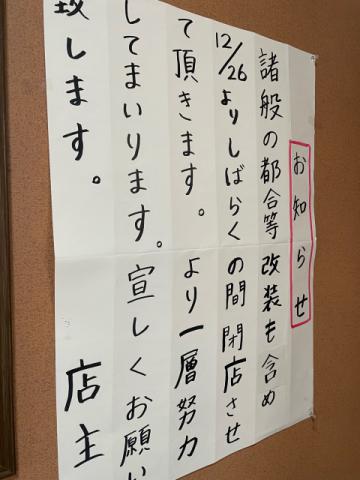 お知らせ
諸般の都合等 改装も含め
12/26よりしばらくの間閉店させ
て頂きます。より一層努力
してまいります。宜しくお願い
致します。店主